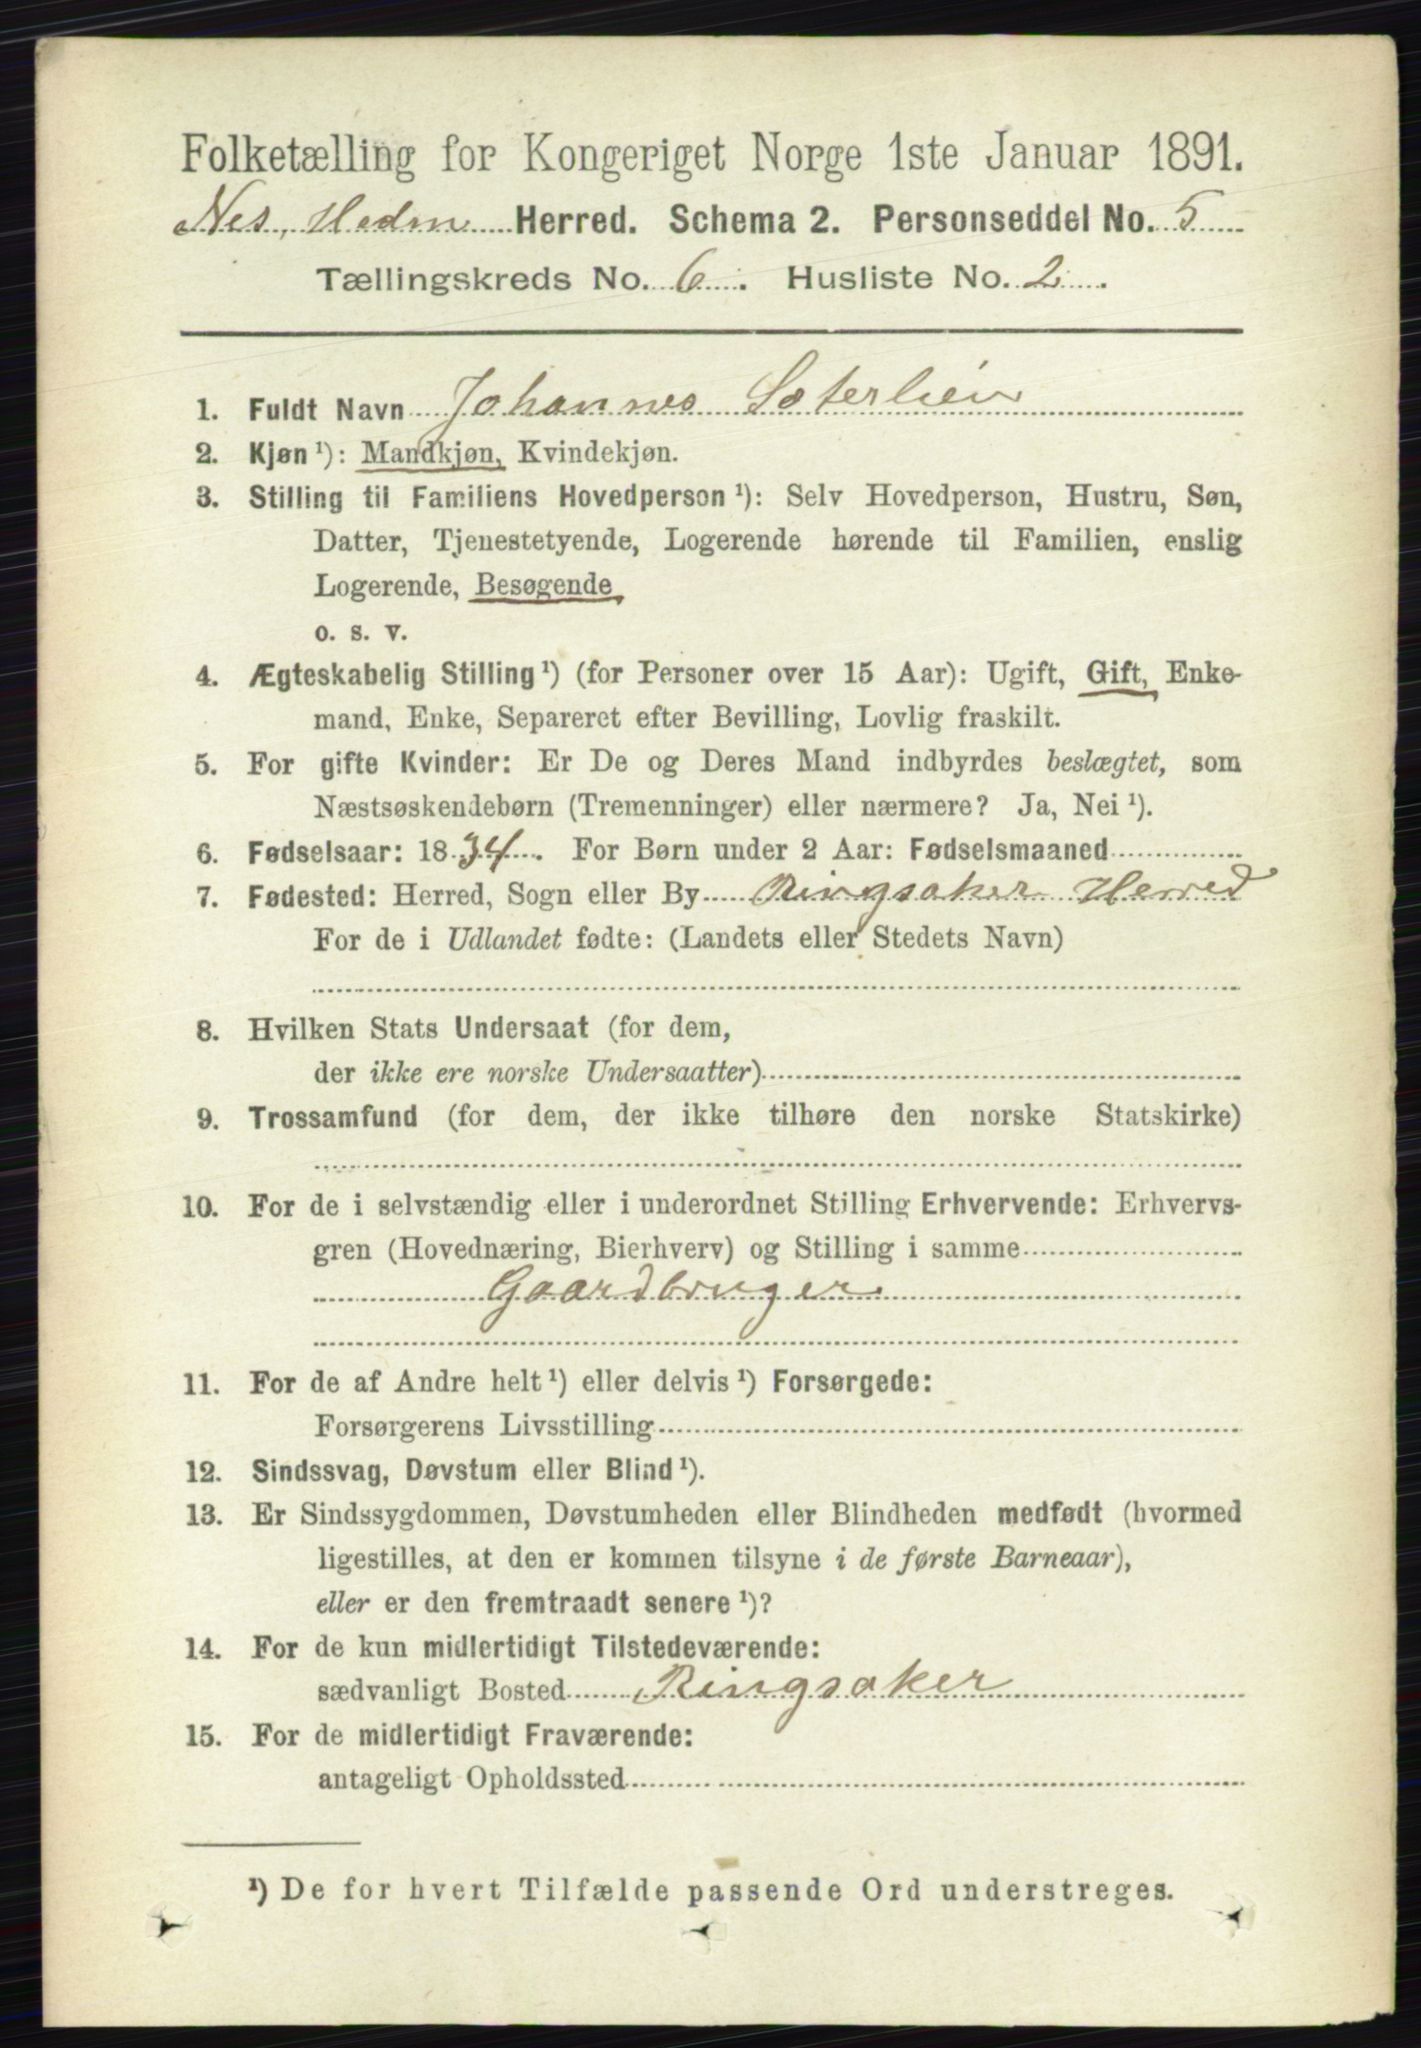 Folketælling for Kongeriget Norge 1ste Januar 1891.
Nes, Hedm Herred. Schema 2. Personseddel No. 5
Tællingskreds No. 6. Husliste No. 2.
1. Fuldt Navn Johannes Sæterlien
2. Kjøn ¹): Mandkjøn, Kvindekjøn.
3. Stilling til Familiens Hovedperson ¹): Selv Hovedperson, Hustru, Søn,
Datter, Tjenestetyende, Logerende hørende til Familien, enslig
Logerende, Besøgende
o. s. v.
4. Ægteskabelig Stilling ¹) (for Personer over 15 Aar): Ugift, Gift, Enke-
mand, Enke, Separeret efter Bevilling, Lovlig fraskilt.
5. For gifte Kvinder: Er De og Deres Mand indbyrdes beslægtet, som
Næstsøskendebørn (Tremenninger) eller nærmere? Ja, Nei ¹).
6. Fødselsaar: 1834. For Børn under 2 Aar: Fødselsmaaned
7. Fødested: Herred, Sogn eller By Ringsaker Herred
For de i Udlandet fødte: (Landets eller Stedets Navn)
8. Hvilken Stats Undersaat (for dem,
der ikke ere norske Undersaatter)
9. Trossamfund (for dem, der ikke tilhøre den norske Statskirke)
10. For de i selvstændig eller i underordnet Stilling Erhvervende: Erhvervs-
gren (Hovednæring, Bierhverv) og Stilling i samme
Gaardbruger
11. For de af Andre helt ¹) eller delvis ¹) Forsørgede:
Forsørgerens Livsstilling
12. Sindssvag, Døvstum eller Blind ¹).
13. Er Sindssygdommen, Døvstumheden eller Blindheden medfødt (hvormed
ligestilles, at den er kommen tilsyne i de første Barneaar),
eller er den fremtraadt senere ¹)?
14. For de kun midlertidigt Tilstedeværende:
sædvanligt Bosted Ringsaker
15. For de midlertidigt Fraværende:
antageligt Opholdssted
¹) De for hvert Tilfælde passende Ord understreges.